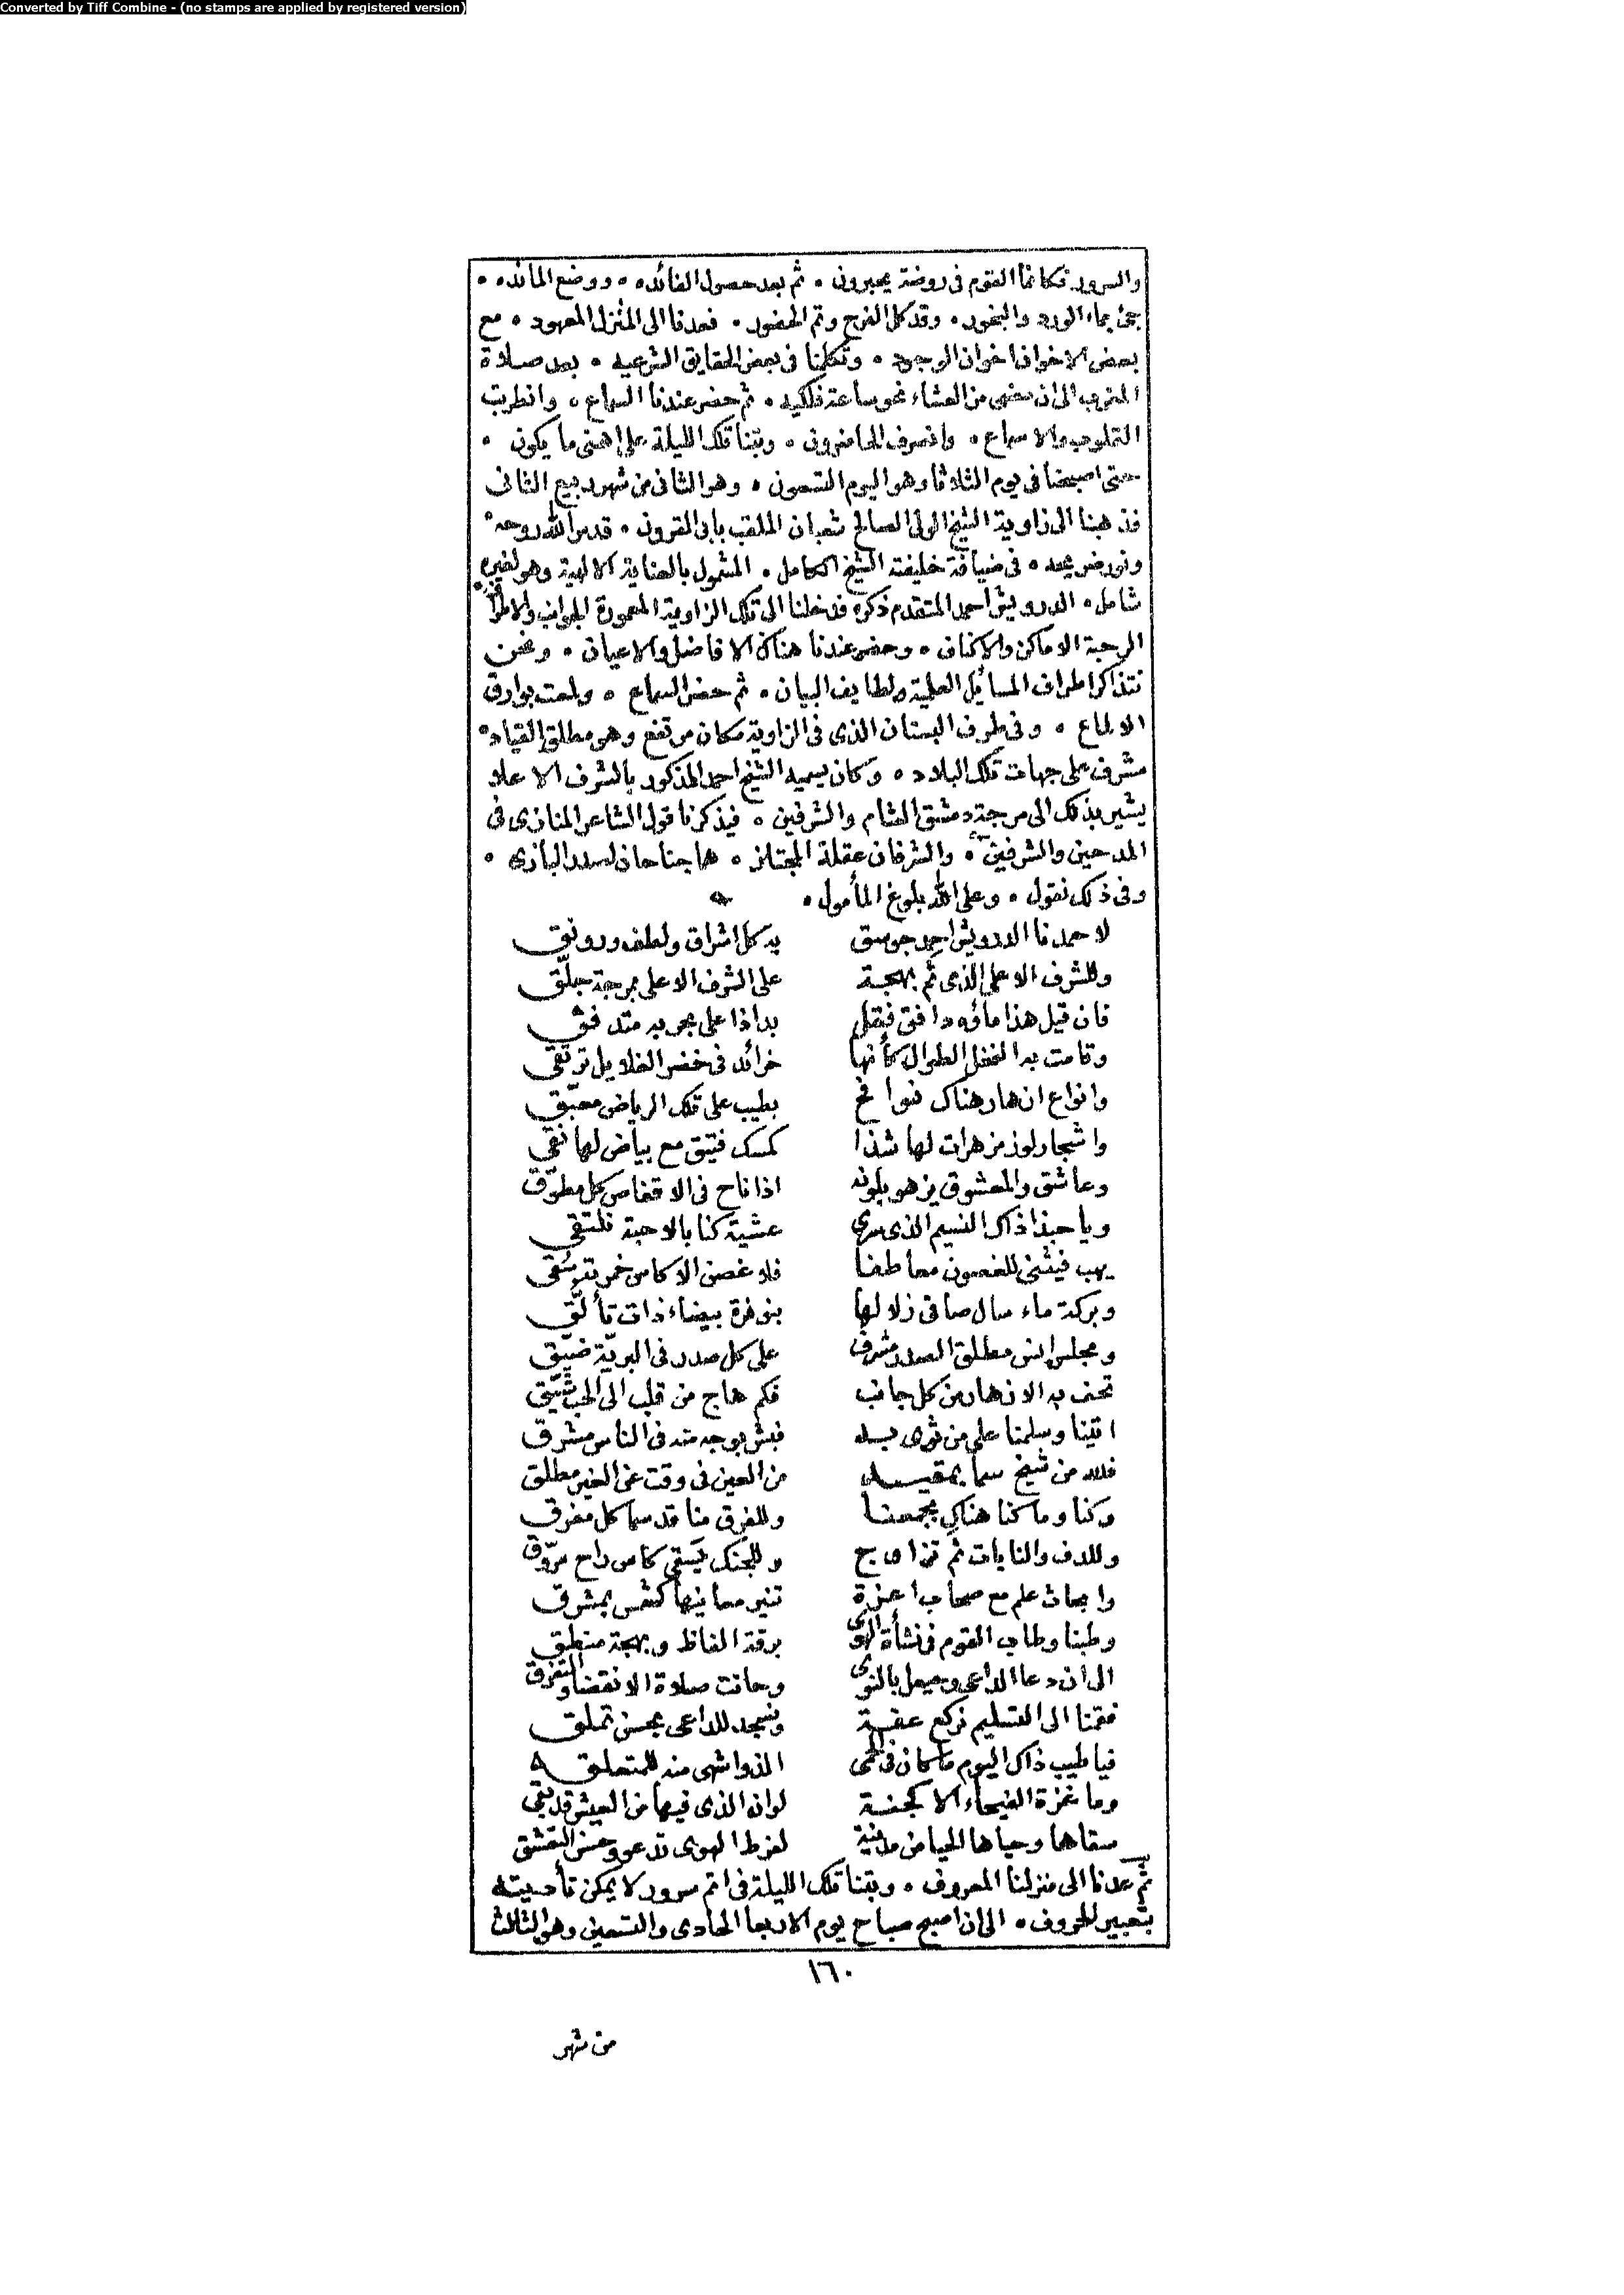 Converted by Tiff Combine - (no stamps are applied by registered version)
والسرور فكانما القوم في روضة يحبرون . ثم بعد حصول الفائده . ووضع المائده .
جئ بماء الورد والبخور . وقد كل الفرح وتم الحضور . فعدنا الى المنزل المعهود . مع
بعض الاخوان اخوان الوجود . وتكلمنا في بعض الحقايق الشرعيه . بعد صلاة
المغرب الى ان مضى من العشاء نحو ساعة فلكيه . ثم حضر عندنا السماع . وانطربت
القلوب والاسماع . وانصرف الحاضرون . وبتنا تلك الليلة على اهنى ما يكون .
حتى اصبحنا في يوم الثلاثا وهو اليوم التسعون . وهو الثاني من شهر ربيع الثاني
فذهبنا الى زاوية الشيخ الولي الصالح شعبان الملقب بابي القرون . قدس الله روحه
ونور ضريحه . في ضيافة خليفته الشيخ الكامل . المشمول بالعناية الالهية وهو لغيره
شامل . الدرويش احمد المتقدم ذكره فدخلنا الى تلك الزاوية المعمورة الجوانب والاطراف
الرحبة الاماكن والاكناف . وحضر عندنا هناك الافاضل والاعيان . ونحن
نتذاكر اطراف المسائل العلمية ولطايف البيان . ثم حضر السماع . ولمعت بوارق
الالماع . وفي طرف البستان الذي في الزاوية مكان مرتفع وهو مطلق القياد
مشرف على جهات تلك البلاد . وكان يسميه الشيخ احمد المذكور بالشرف الاعلا
يشير بذلك الى مرجة دمشق الشام والشرفين . فيذكرنا قول الشاعر المنازي في
المدحين والشرفين . والشرفان عقلة المجتاز . هما جناحان لصدر البازي .
وفي ذلك نقول . وعلى الله بلوغ المأمول .
لاحمدنا الدرويش احمد جوسق به كل اشراق ولطف ورونق
وللشرف الاعلى الذي ثم بهجة على الشرف الاعلى بمرجة جلّق
فان قيل هذا ماؤه دافق فقل بداذا على بحر به متدفق
وقامت به النخل الطوال كأنها خرائد في خضر الغلايل ترتقي
وانواع ازهار هناك فوائح بطيب على تلك الرياض معبّق
واشجار لوز مزهرات لها شذا كمسك فتيق مع بياض لها نقي
وعاشق والمعشوق يزهو بلونه اذا ناح في الاقفاص كل مطوّق
ويا حبذا ذاك النسيم الذي سرى عشية كنا بالاحبة نلتقي
يهب فيثني للغصون معاطفا فلا غصن الا كاس خمر به سُقي
وبركة ماء سال صافي زلالها بنوفرة بيضاء ذات تألّق
ومجلس انس مطلق الصدر مشرف على كل صدر في البريّة ضيّق
تحف به الازهار من كل جانب فكم هاج من قلب الى الحب شيّق
اتينا وسلمنا على من ثوى به فبش بوجه منه في الناس مشرق
فلله من شيخ سما بمقيـــد من العين في وقت عن الغير مطلق
وكنا وما كنا هناك بجمعنا وللفرق منا قد سما كل مفرق
وللدف والنايات ثم تزاوج وللجنك يسقي كاس راح مروّق
وابحاث علم مع صحاب اعزة تنير معانيها كشمس بمشرق
وطبنا وطاب القوم في نشأة الهوى برقة الفاظ وبهجة منطق
الى ان دعا الداعي وحيعل بالنوى وحانت صلاة الانقضا والتفرق
فقمنا الى التسليم نركع عقبة ونسجد للداعي بحسن تملق
فيا طيب ذاك اليوم ما كان في الحمى الذ واشهى منه للمتعلق
وما غزة الفيحاء الا كجنة لو ان الذي فيها من العيش قد بقي
سقاها وحياها الحيا من مدينة لفرط الهوى تدعو وحسن التعشق
ثم عدنا الى منزلنا المعروف . وبتنا تلك الليلة في اتم سرور لا يمكن تأديته
بتعبير الحروف . الى ان اصبح صباح يوم الاربعا الحادي والتسعين وهو الثالث
١٦٠
من شهر